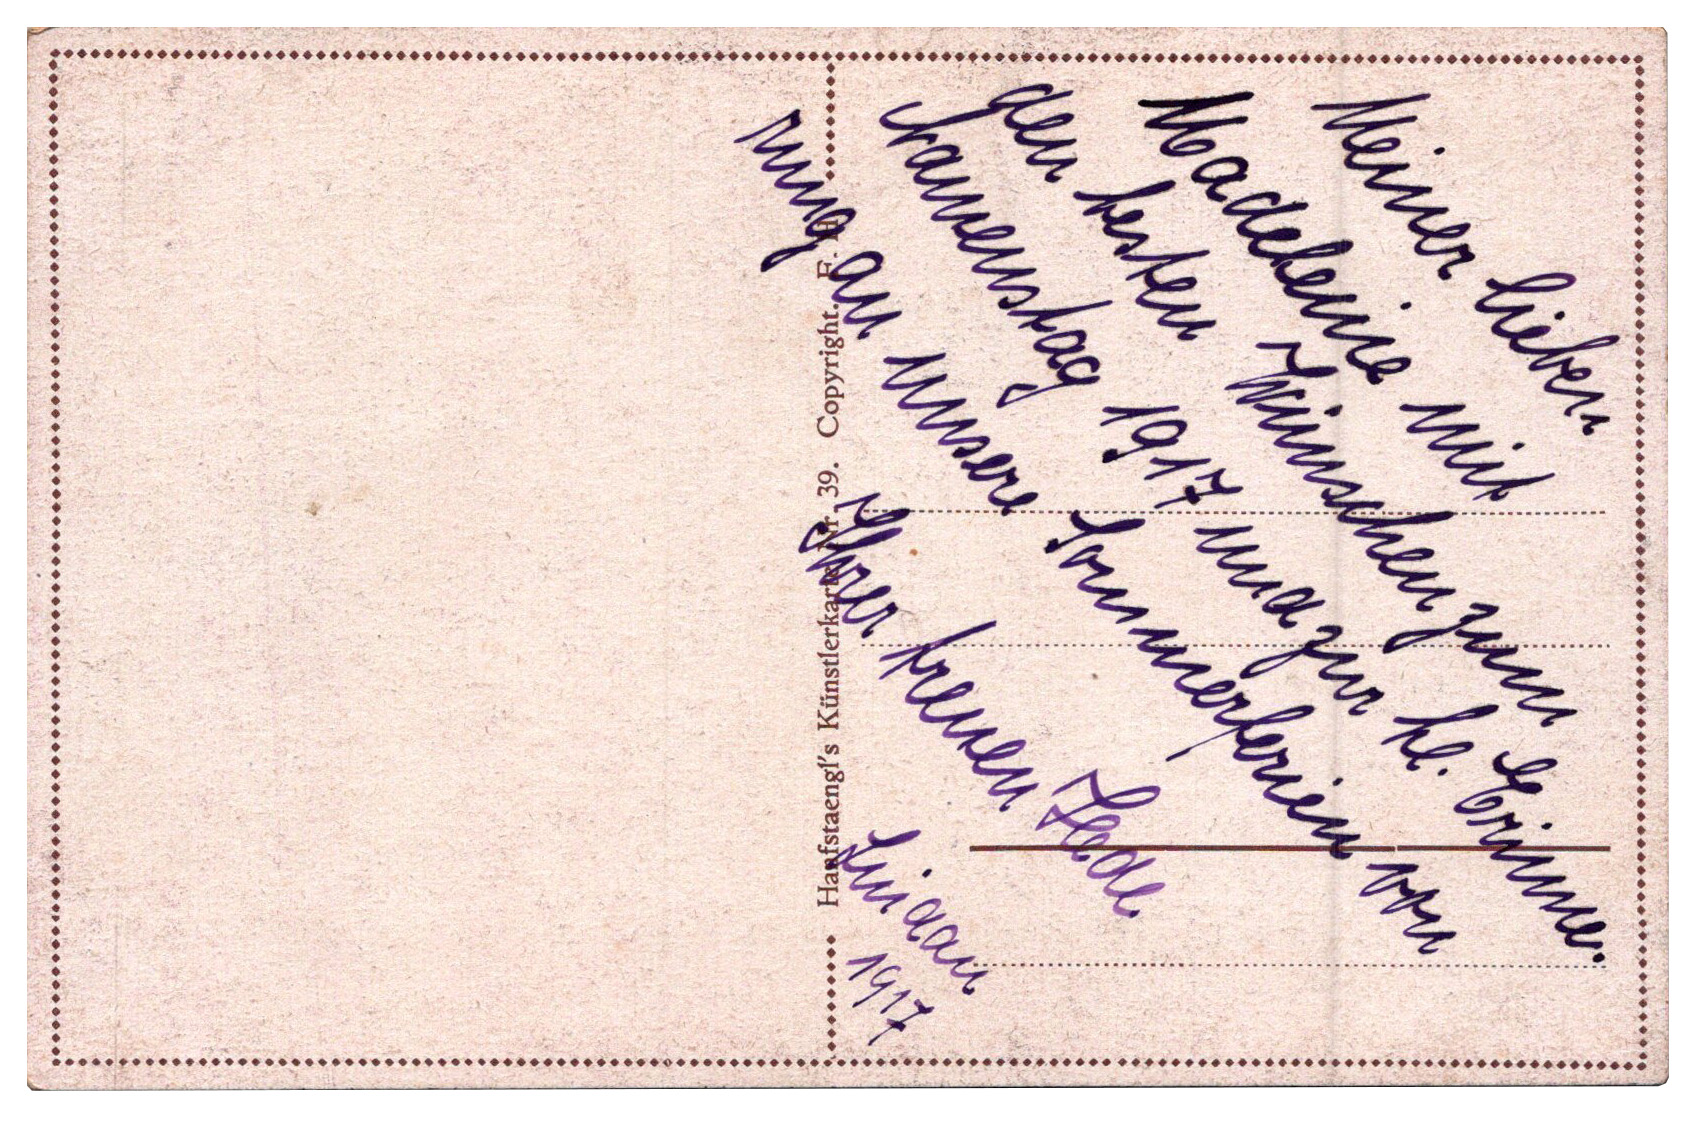 Meiner lieben
Madeleine mit
den besten Wünschen zum
Namenstag 1917 und zur kl. Erinne.
rung an unsere Sommerferien von
Ihrer treuen Hede
Lindau
1917
Hanfstaengl's Künstlerkarte Nr. 39. Copyright. F. H.